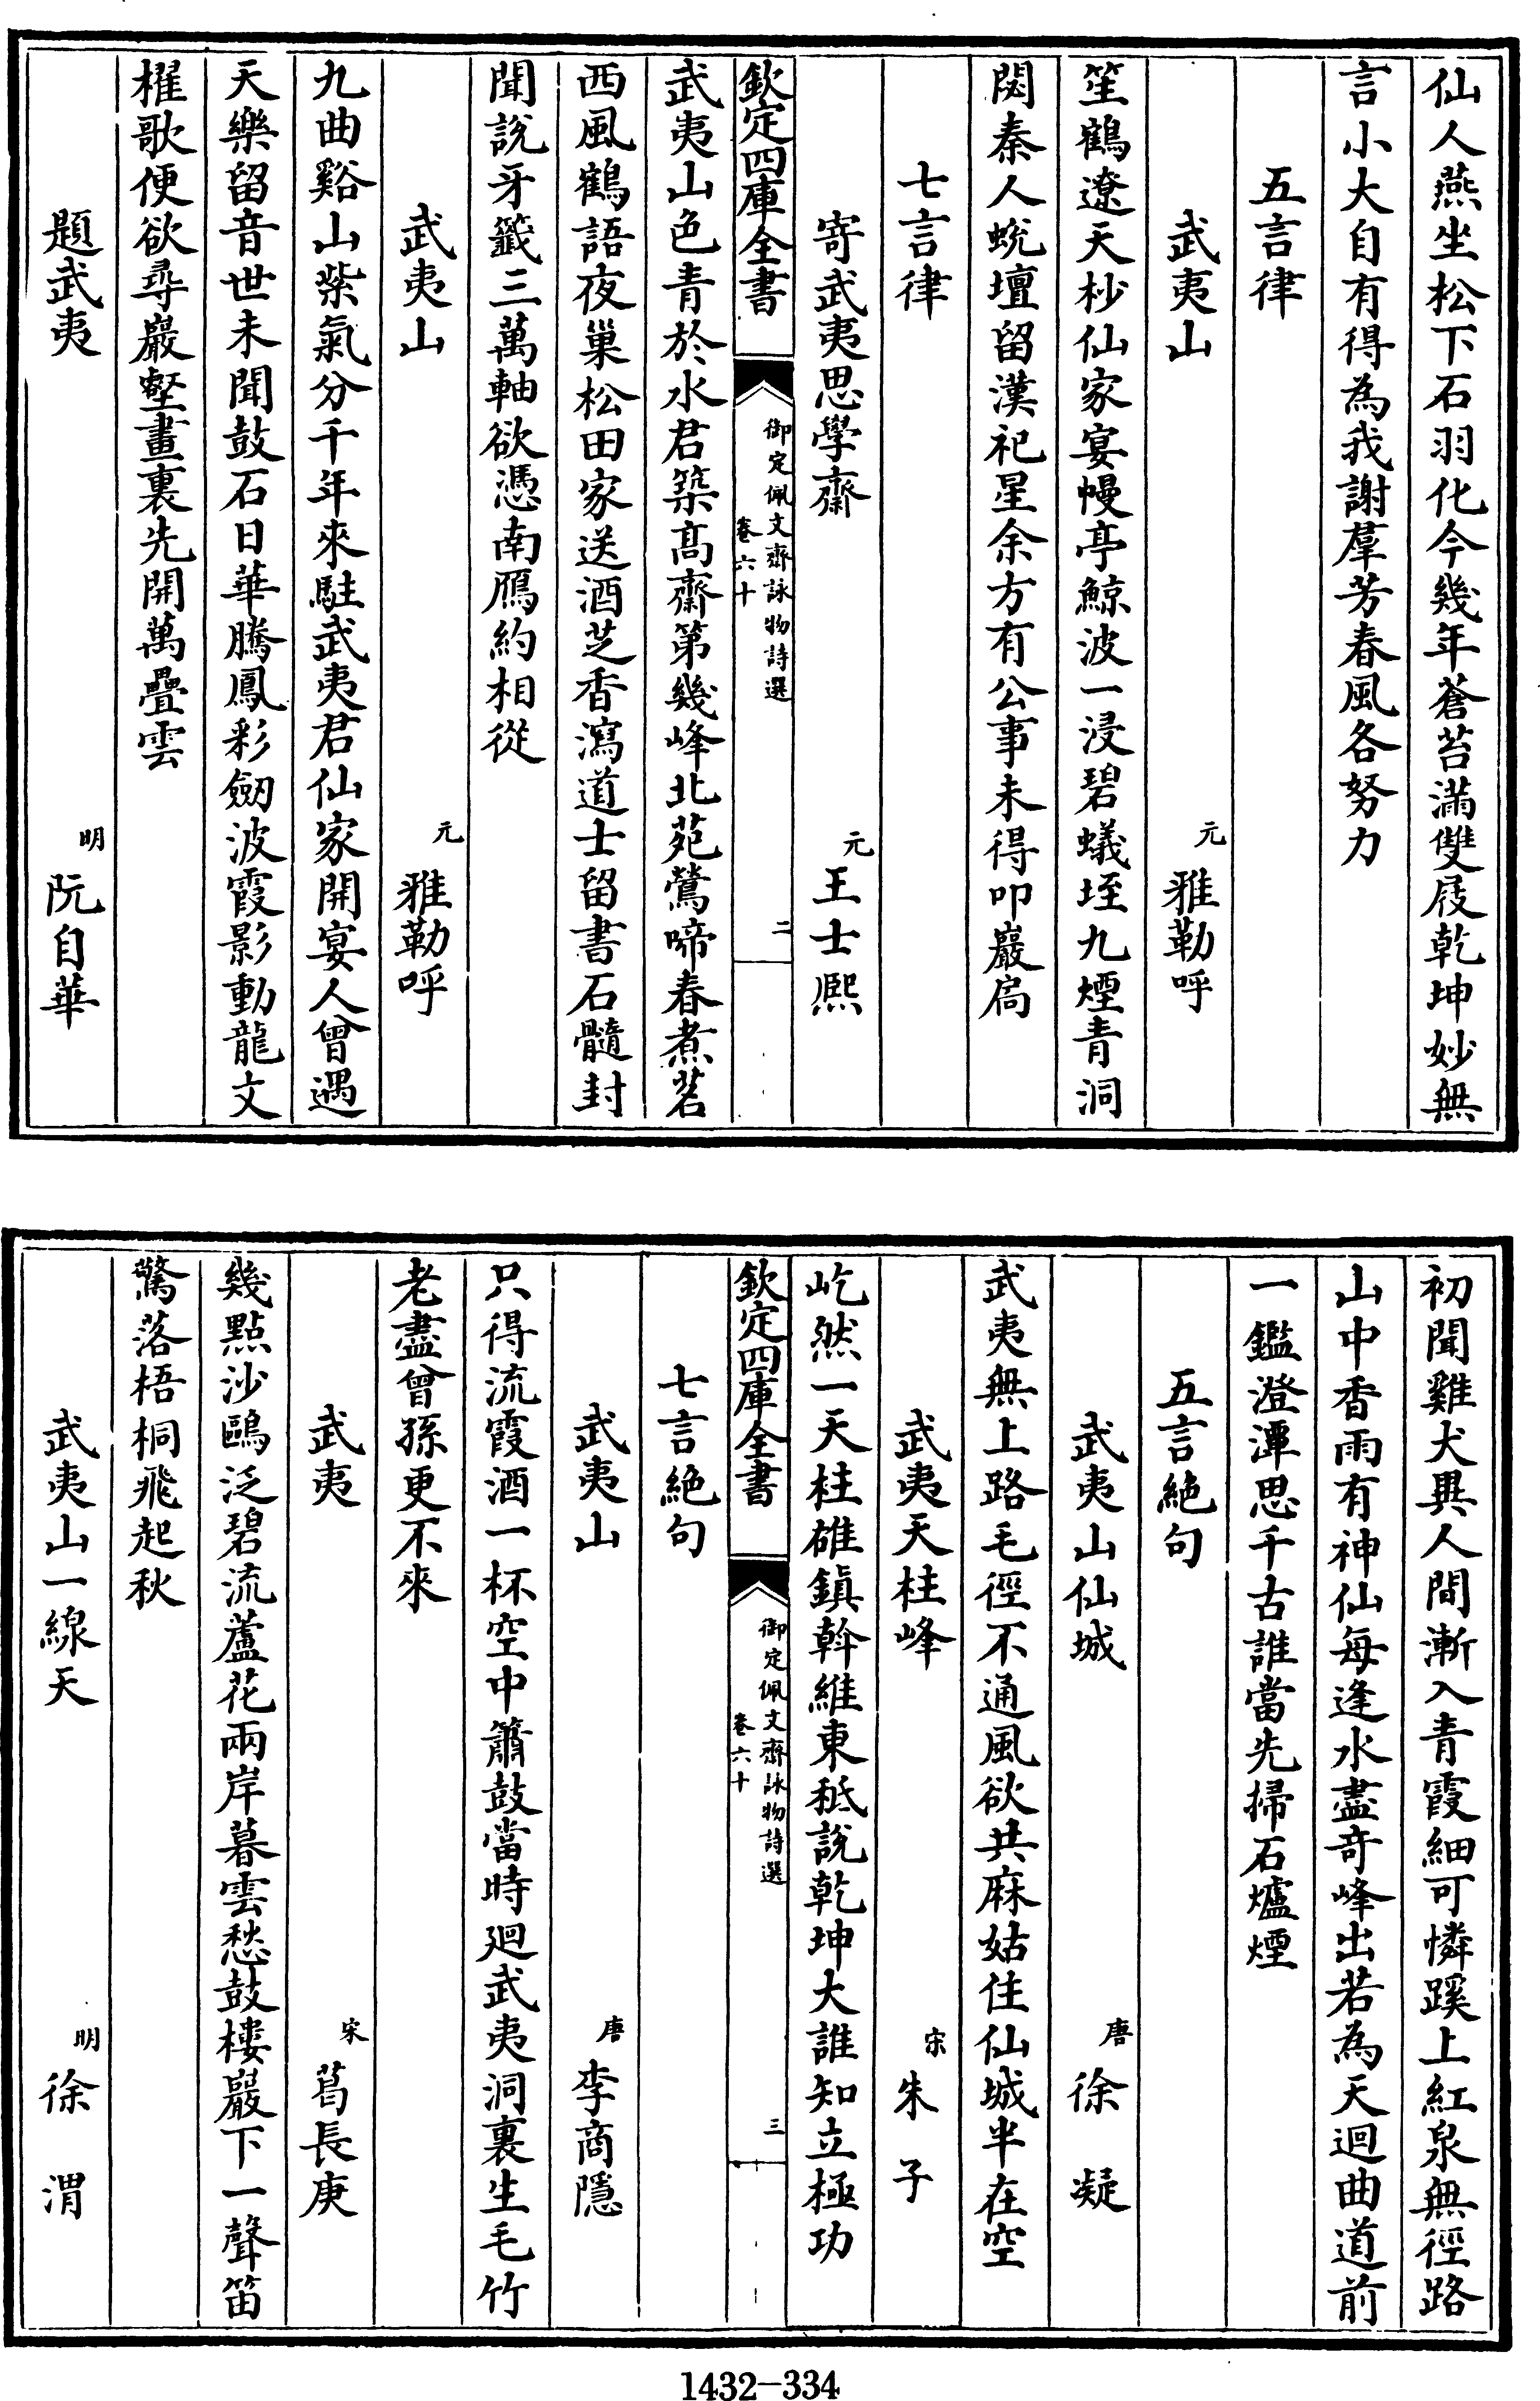 仙人燕坐松下石羽化今幾年蒼苔滿雙屐乾坤妙無
言小大自有得為我謝羣芳春風各努力
五言律
武夷山 元 雅勒呼
笙鶴遼天杪仙家宴幔亭鯨波一浸碧蟻垤九煙青洞
閟秦人蛻壇留漢祀星余方有公事未得叩巖扃
七言律
寄武夷思學齋 元 王士熈
欽定四庫全書 御定佩文齋詠物詩選 卷六十 二
武夷山色青於水君築髙齋第幾峰北苑鶯啼春煮茗
西風鶴語夜巢松田家送酒芝香瀉道士留書石髓封
聞說牙籤三萬軸欲憑南鴈約相從
武夷山 元 雅勒呼
九曲谿山紫氣分千年來駐武夷君仙家開宴人曾遇
天樂留音世未聞鼓石日華騰鳳彩劒波霞影動龍文
櫂歌便欲尋巖壑畫裏先開萬疊雲
題武夷 明 阮自華
初聞雞犬異人間漸入青霞細可憐蹊上紅泉無徑路
山中香雨有神仙每逢水盡奇峰出若為天迴曲道前
一鑑澄潭思千古誰當先掃石爐煙
五言絕句
武夷山仙城 唐 徐凝
武夷無上路毛徑不通風欲共麻姑住仙城半在空
武夷天柱峰 宋 朱子
屹然一天柱雄鎮斡維東秪說乾坤大誰知立極功
欽定四庫全書 御定佩文齋詠物詩選 卷六十 三
七言絕句
武夷山 唐 李商隱
只得流霞酒一杯空中簫鼓當時迴武夷洞裏生毛竹
老盡曾孫更不來
武夷 宋 葛長庚
幾點沙鷗泛碧流蘆花兩岸暮雲愁鼓樓巖下一聲笛
驚落梧桐飛起秋
武夷山一線天 明 徐渭
1432-334